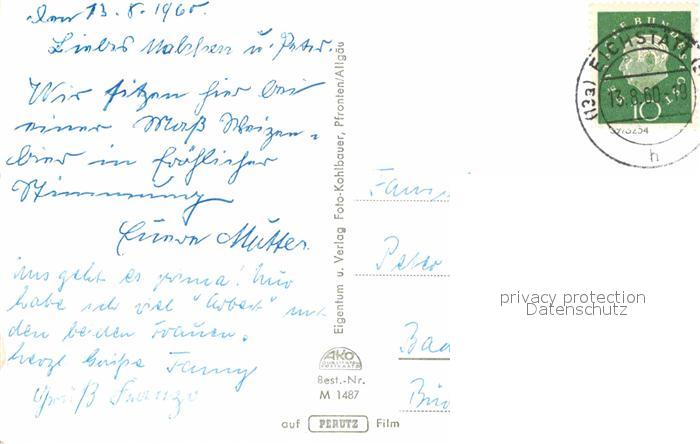 den 13. 8. 1960.
Liebes Malchen u. Peter.
Wir sitzen hier bei
einer Maß Weizen-
bier in fröhlicher
Stimmung
Euere Mutter.
uns geht es prima! Nur
habe ich viel "Arbeit" mit
den beiden Frauen.
herzl Grüße Fanny
Gruß
Eigentum u. Verlag Foto-Kohlbauer, Pfronten/Allgäu
AKO
Best.-Nr.
M 1487
auf PERUTZ Film
(13a) EICHSTÄTT
13.8.60
10
h
Peter
privacy protection
Datenschutz